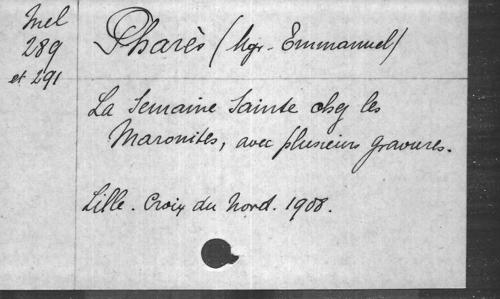 Mel
289
et 291
Pharès (Mgr. Emmanuel)
La Semaine Sainte chez les
Maronites, avec plusieurs gravures.
Lille. Croix du Nord. 1908.